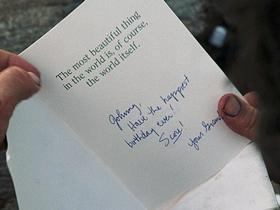 The most beautiful thing
in the world is, of course,
the world itself.
Johnny,
Have the happiest
birthday ever!
Score!
Your